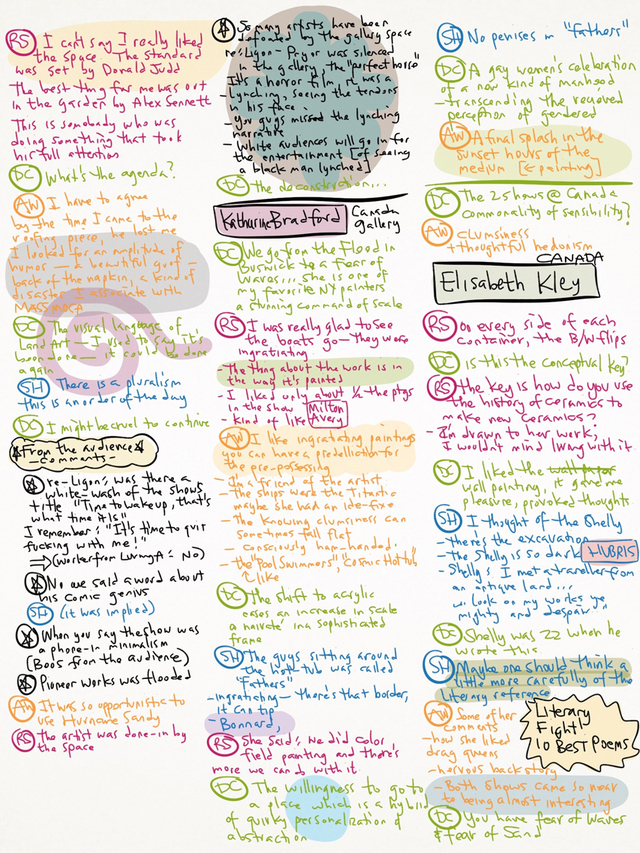 RS I can't say I really liked
the space. The standard
was set by Donald Judd
The best thing for me was out
in the garden by Alex Sennett
This is somebody who was
doing something that took
his full attention
DC What's the agenda?
AW I have to agree
by the time I came to the
roofing piece, he lost me
I looked for an amplitude of
humor — a beautiful goof —
back of the napkin, a kind of
disaster I associate with
MASSMOCA
DC The visual language of
Land Art — I used to say it's
been done — it could be done
again
SH There is a pluralism
this is an order of the day
DC I might be cruel to continue
From the audience
— comments —
re-Ligon: was there a
white-wash of the shows
title "Time to wake up, that's
what time it is"
I remember: "It's time to quit
fucking with me!"
⇒ (Writer from Living A: No)
No we said a word about
his comic genius
SH (it was implied)
When you say the show was
a phone-in minimalism
(Boos from the audience)
Pioneer Works was flooded
AW It was so opportunistic to
use Hurricane Sandy
RS the artist was done-in by
the space
So many artists have been
defeated by the gallery space
re: Ligon - Pryor was silenced
in the gallery, the "perfect horse"
It's a horror film, it was a
- Lynching, seeing the tendons
in his face.
- you guys missed the lynching
narrative
- White audiences will go in for
the entertainment [of seeing
a black man lynched]
DC the deconstruction...
Katharine Bradford Canada
gallery
DC We go from the Flood in
Buswick to a fear of
Waves... she is one of
my favorite NY painters
a stunning command of scale
RS I was really glad to see
the boats go — they were
ingratiating
- The thing about the work is in
the way it's painted
- I liked only about ½ the ptgs
in the show Milton
- kind of like Avery
AW I like ingratiating paintings
you can have a predeliction for
the pre-possessing
- I'm a friend of the artist
- the ships were the Titanic
maybe she had an ide-fixe
- The knowing clumsiness can
sometimes fall flat
- consciously ham-handed
- the "Pool Swimmers" "Cosmic Hot tub"
I like
DC The shift to acrylic
eases an increase in scale
a naivete in a sophisticated
frame
SH The guys sitting around
the hot-tub was called
"Fathers"
- ingratiating — there's that border,
it can tip
- Bonnard,
RS She said: we did color
field painting and there's
more we can do with it
DC The willingness to go to
a place which is a hybrid
of quirky personalization &
abstraction
SH No penises in "Fathers"
DC A gay women's celebration
of a new kind of manhood
- Transcending the removed
perception of gendered
AW A final splash in the
sunset hours of the
medium [← painting]
DC The 2 shows @ Canada
commonality of sensibility?
AW clumsiness
+ thoughtful hedonism
CANADA
Elisabeth Kley
RS on every side of each
container, the B/W flips
DC is this the conceptual key?
RS the key is how do you use
the history of ceramics to
make new ceramics?
- I'm drawn to her work,
I wouldn't mind living with it
DC I liked the
wall painting, it gave me
pleasure, provoked thoughts
SH I thought of the Shelly
- there's the excavation
- the Shelly is so dark HUBRIS
- Shelly: I met a traveller from
an antique land...
... look on my works ye
mighty and despair"
DC Shelly was 22 when he
wrote this
SH Maybe one should think a
little more carefully of the
literary reference
AW Some of her
comments
- how she liked
drag queens
- nervous backstory
Literary
Fight
10 BEST Poems
- Both shows came so near
to being almost interesting
DC You have fear of Waves
& fear of Sand